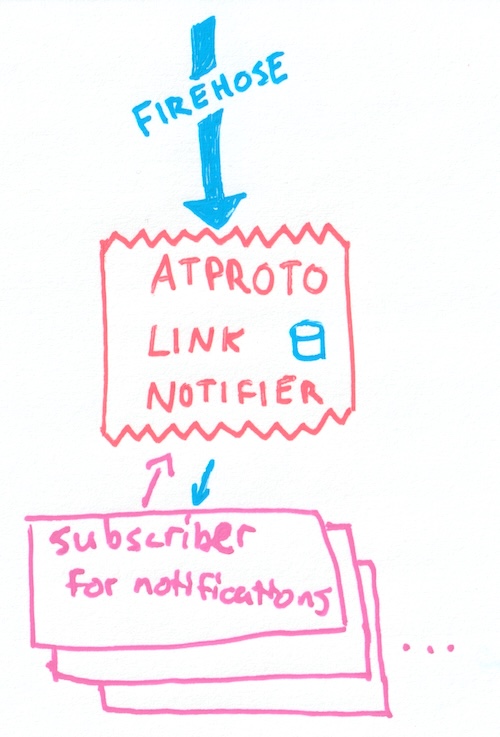 FIREHOSE
ATPROTO
LINK
NOTIFIER
subscriber
for notifications
...